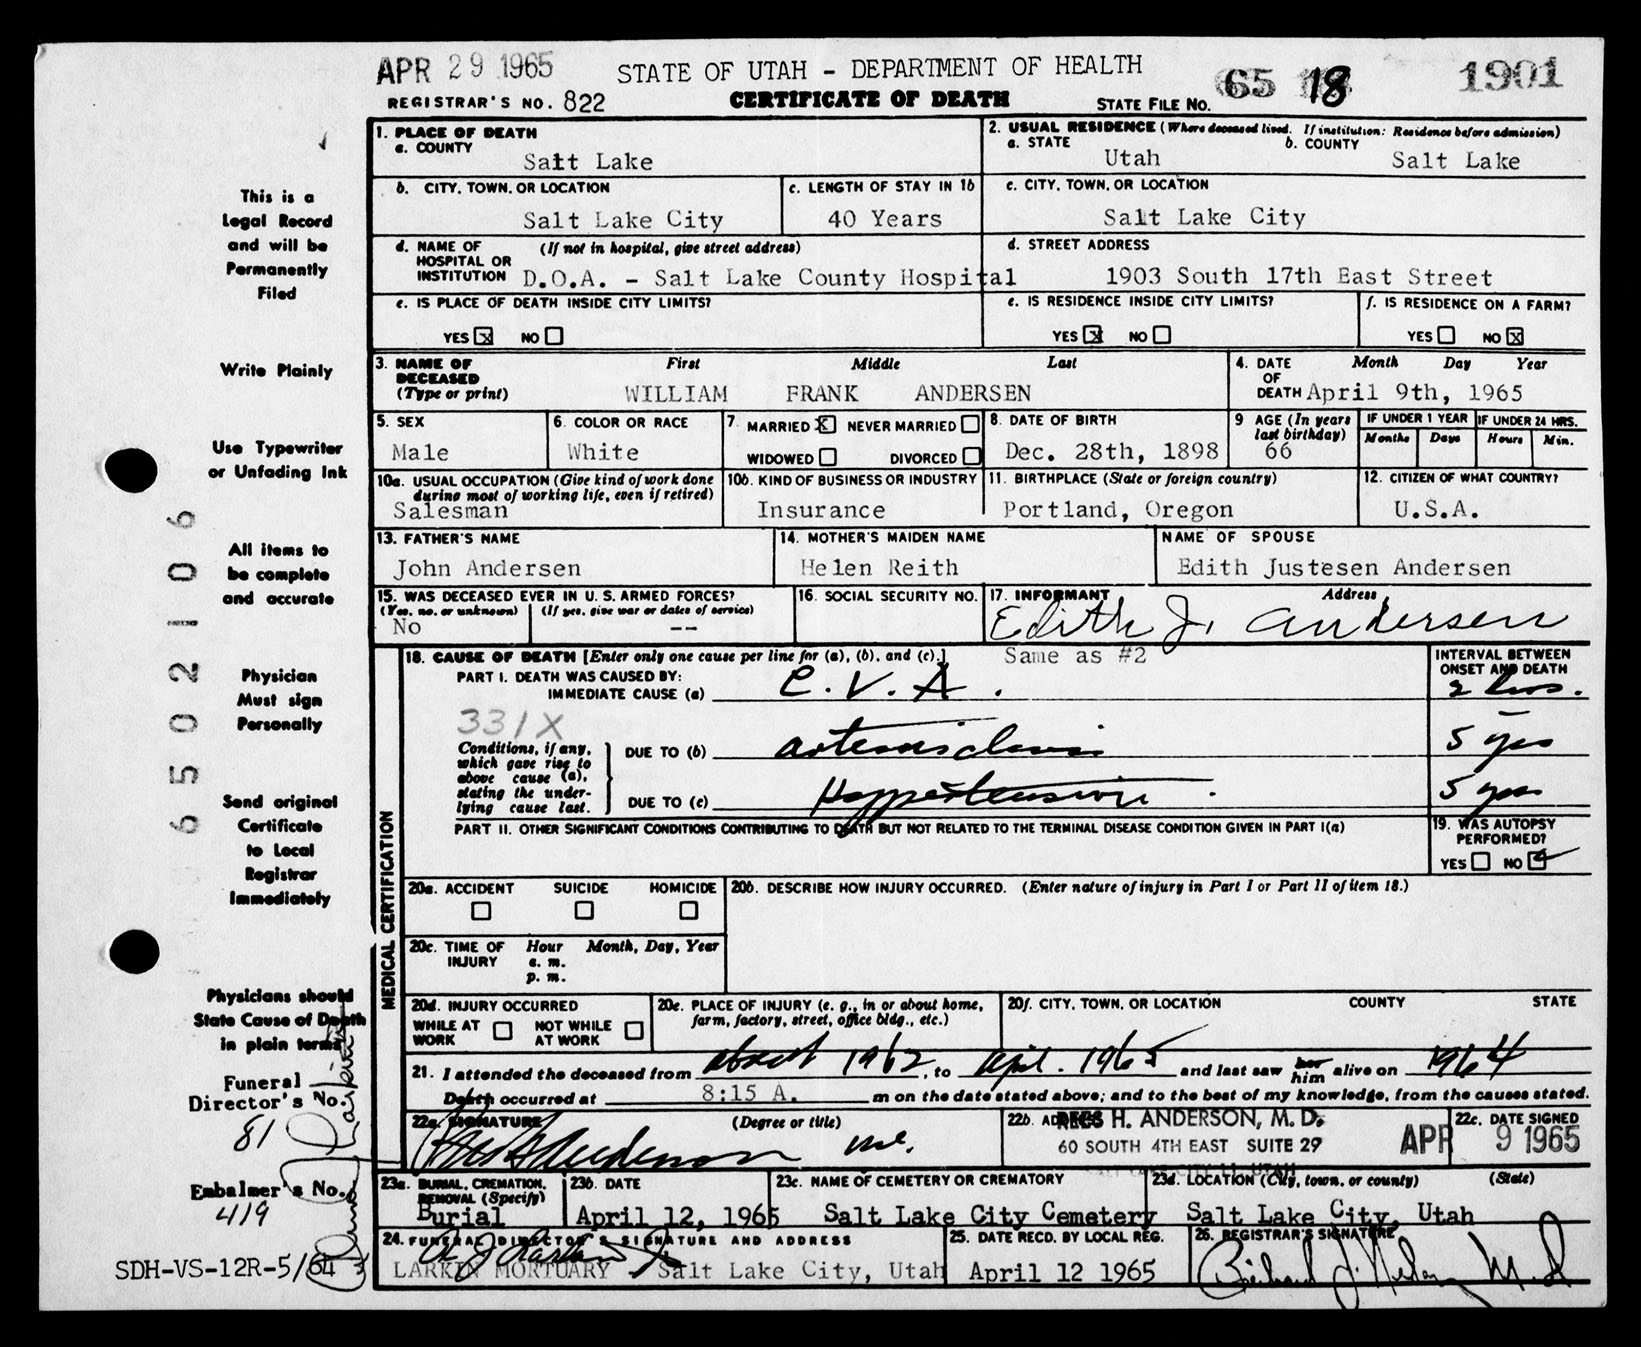 APR 29 1965 STATE OF UTAH - DEPARTMENT OF HEALTH 65 18 1901
REGISTRAR'S NO. 822 CERTIFICATE OF DEATH STATE FILE NO.
1. PLACE OF DEATH
a. COUNTY
Salt Lake
2. USUAL RESIDENCE (Where deceased lived. If institution: Residence before admission)
a. STATE b. COUNTY
Utah Salt Lake
b. CITY, TOWN, OR LOCATION
Salt Lake City
c. LENGTH OF STAY IN 1b
40 Years
c. CITY, TOWN, OR LOCATION
Salt Lake City
d. NAME OF (If not in hospital, give street address)
HOSPITAL OR
INSTITUTION D.O.A. - Salt Lake County Hospital
d. STREET ADDRESS
1903 South 17th East Street
e. IS PLACE OF DEATH INSIDE CITY LIMITS?
YES X NO
e. IS RESIDENCE INSIDE CITY LIMITS?
YES X NO
f. IS RESIDENCE ON A FARM?
YES NO X
3. NAME OF First Middle Last
DECEASED
(Type or print) WILLIAM FRANK ANDERSEN
4. DATE Month Day Year
OF
DEATH April 9th, 1965
5. SEX
Male
6. COLOR OR RACE
White
7. MARRIED X NEVER MARRIED
WIDOWED DIVORCED
8. DATE OF BIRTH
Dec. 28th, 1898
9 AGE (In years
last birthday)
66
IF UNDER 1 YEAR IF UNDER 24 HRS.
Months Days Hours Min.
10a. USUAL OCCUPATION (Give kind of work done
during most of working life, even if retired)
Salesman
10b. KIND OF BUSINESS OR INDUSTRY
Insurance
11. BIRTHPLACE (State or foreign country)
Portland, Oregon
12. CITIZEN OF WHAT COUNTRY?
U.S.A.
13. FATHER'S NAME
John Andersen
14. MOTHER'S MAIDEN NAME
Helen Reith
NAME OF SPOUSE
Edith Justesen Andersen
15. WAS DECEASED EVER IN U. S. ARMED FORCES?
(Yes, no, or unknown) (If yes, give war or dates of service)
No --
16. SOCIAL SECURITY NO.
17. INFORMANT Address
Edith J. Andersen
Same as #2
18. CAUSE OF DEATH [Enter only one cause per line for (a), (b), and (c).]
INTERVAL BETWEEN
ONSET AND DEATH
PART I. DEATH WAS CAUSED BY:
IMMEDIATE CAUSE (a) C.V.A. 2 hrs.
331X
Conditions, if any,
which gave rise to
above cause (a),
stating the under-
lying cause last.
DUE TO (b) arteriosclerosis 5 yrs
DUE TO (c) Hypertension 5 yrs
PART II. OTHER SIGNIFICANT CONDITIONS CONTRIBUTING TO DEATH BUT NOT RELATED TO THE TERMINAL DISEASE CONDITION GIVEN IN PART I(a)
19. WAS AUTOPSY
PERFORMED?
YES NO
MEDICAL CERTIFICATION
20a. ACCIDENT SUICIDE HOMICIDE
20b. DESCRIBE HOW INJURY OCCURRED. (Enter nature of injury in Part I or Part II of item 18.)
20c. TIME OF Hour Month, Day, Year
INJURY a. m.
p. m.
20d. INJURY OCCURRED
WHILE AT NOT WHILE
WORK AT WORK
20e. PLACE OF INJURY (e. g., in or about home,
farm, factory, street, office bldg., etc.)
20f. CITY, TOWN, OR LOCATION COUNTY STATE
21. I attended the deceased from about 1962, to April. 1965 and last saw her him alive on 1964
Death occurred at 8:15 A. m on the date stated above; and to the best of my knowledge, from the causes stated.
22a. SIGNATURE (Degree or title)
22b. ADDRESS
REES H. ANDERSON, M. D.
60 SOUTH 4TH EAST SUITE 29
SALT LAKE CITY 11, UTAH
22c. DATE SIGNED
APR 9 1965
23a. BURIAL, CREMATION,
REMOVAL (Specify)
Burial
23b. DATE
April 12, 1965
23c. NAME OF CEMETERY OR CREMATORY
Salt Lake City Cemetery
23d. LOCATION (City, town, or county) (State)
Salt Lake City, Utah
24. FUNERAL DIRECTOR'S SIGNATURE AND ADDRESS
LARKIN MORTUARY - Salt Lake City, Utah
25. DATE RECD. BY LOCAL REG.
April 12 1965
26. REGISTRAR'S SIGNATURE
This is a
Legal Record
and will be
Permanently
Filed
Write Plainly
Use Typewriter
or Unfading Ink
All items to
be complete
and accurate
Physician
Must sign
Personally
Send original
Certificate
to Local
Registrar
Immediately
Physicians should
State Cause of Death
in plain terms
Funeral
Director's No.
81
Embalmer's No.
419
SDH-VS-12R-5/64
6502106